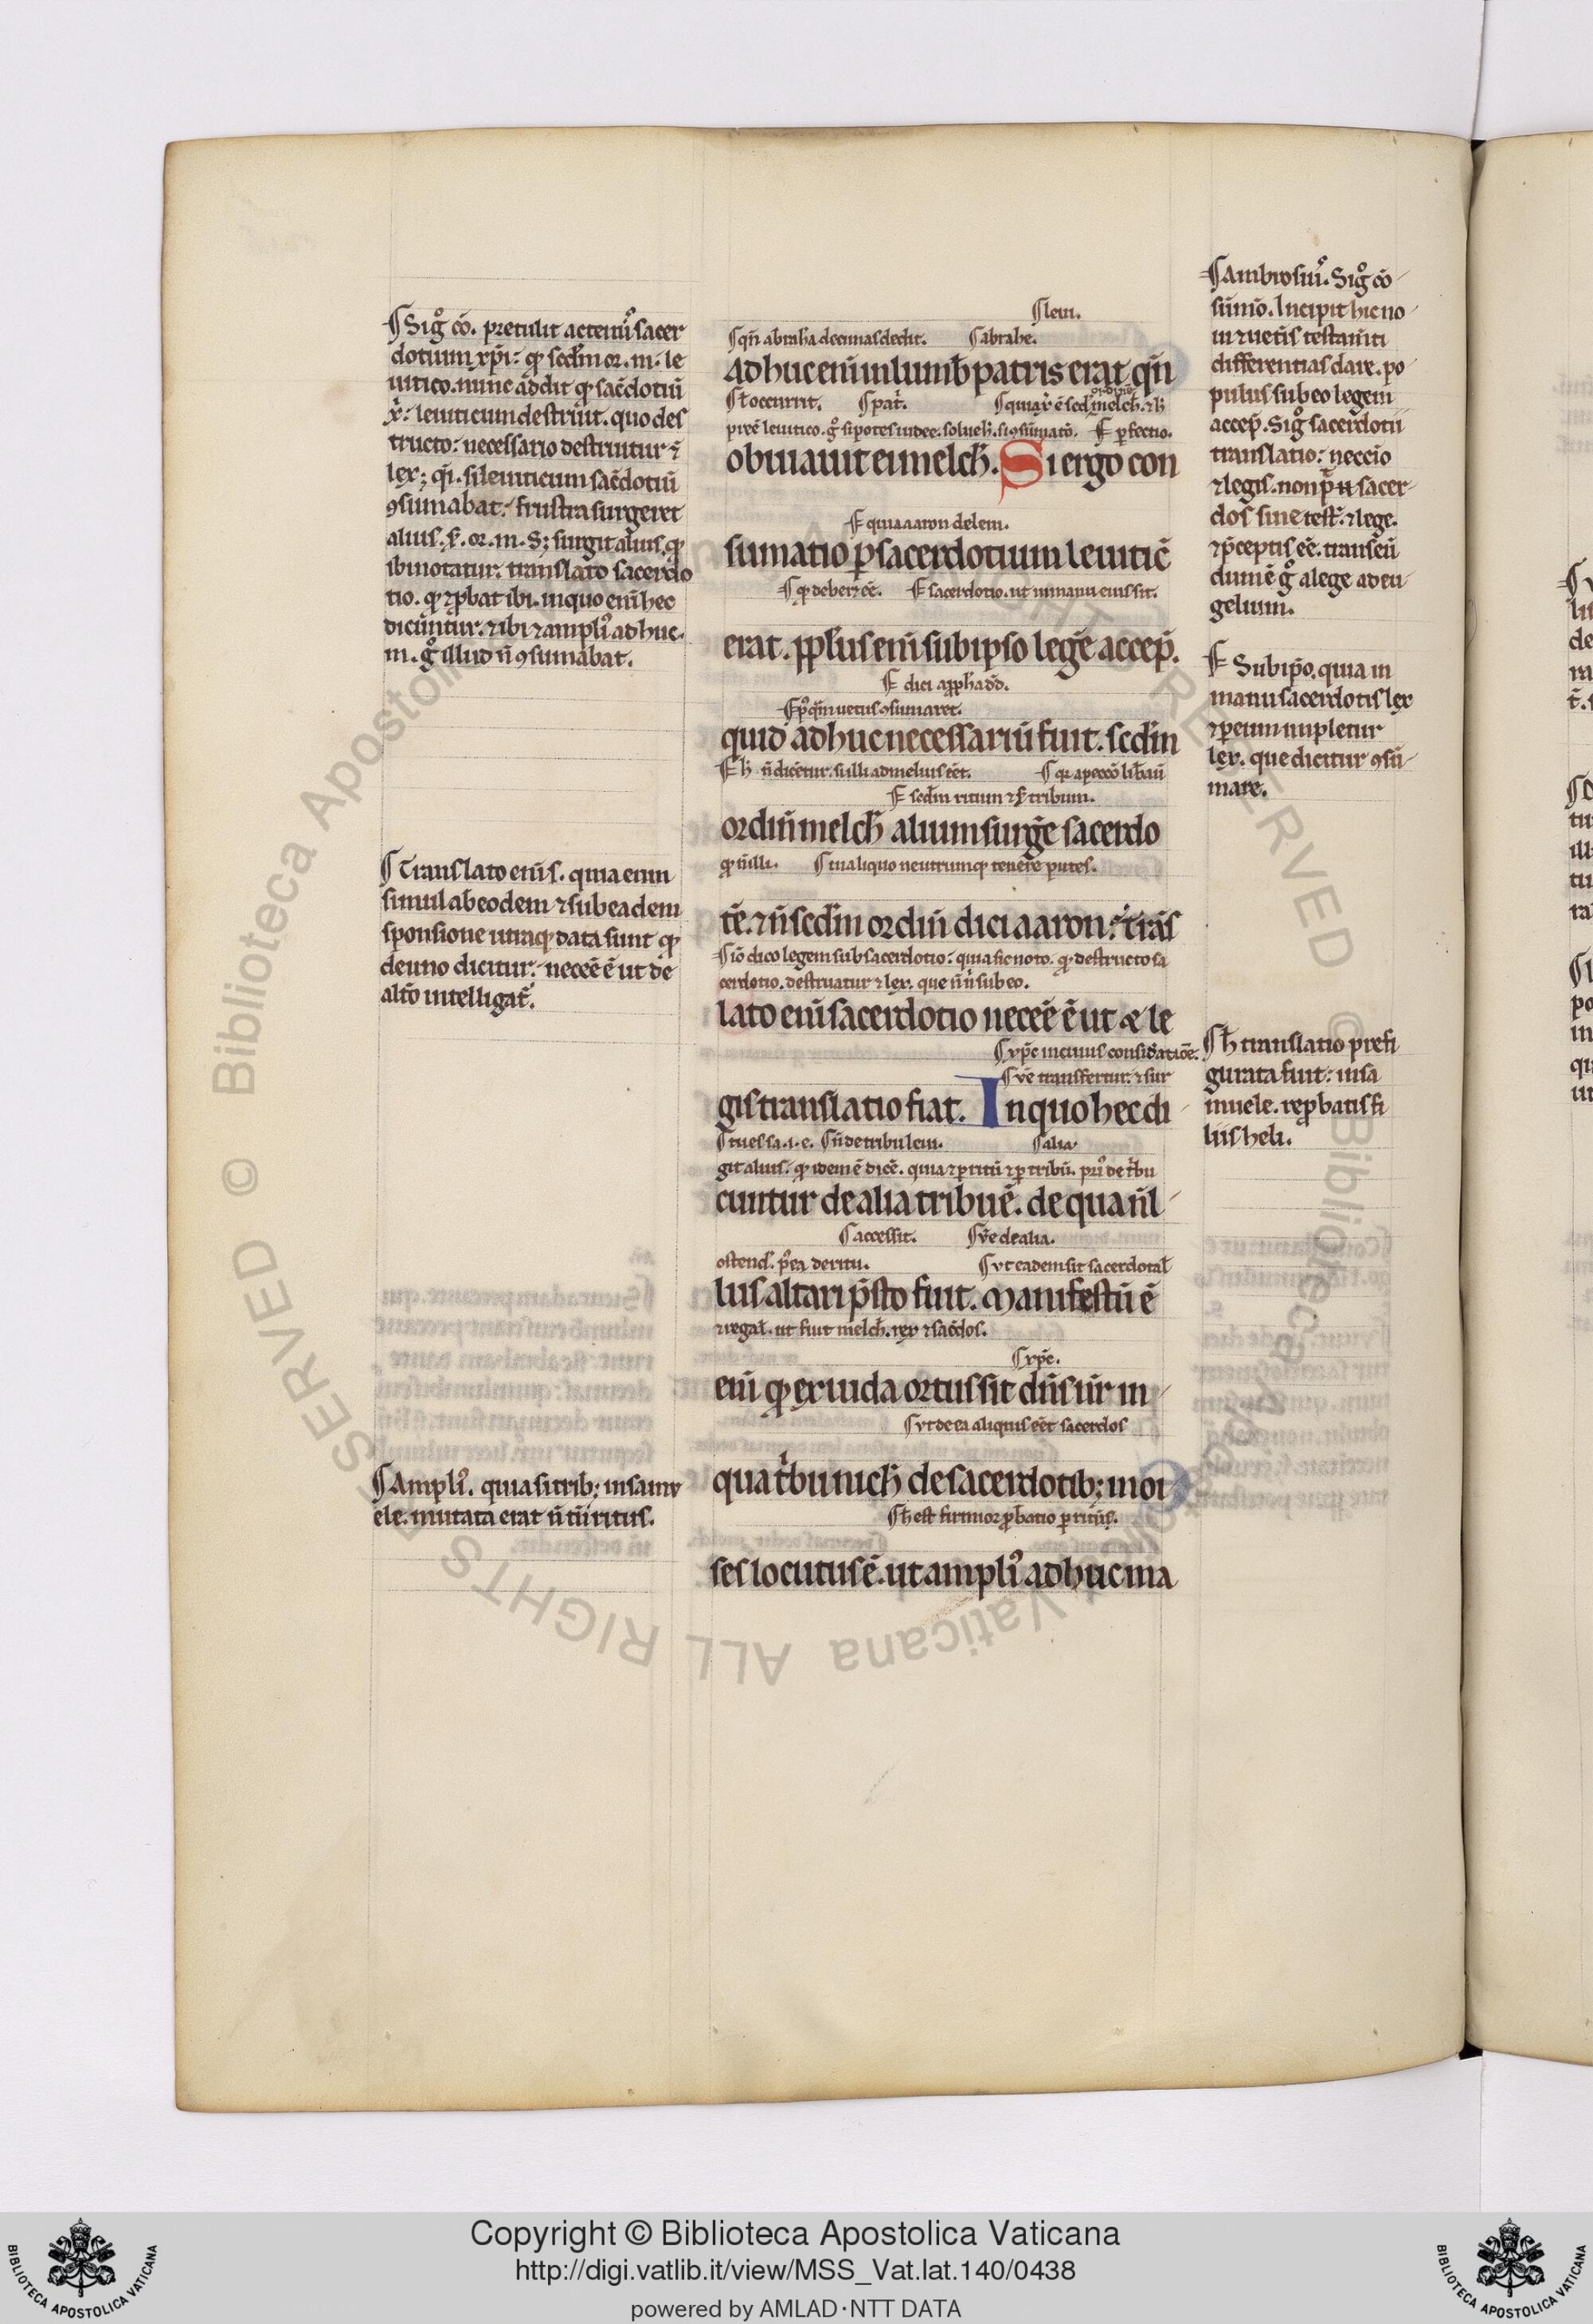 ¶Sigͦ cō. pretulit actenꝰ sacer
dotium xp̄i: qͥ scd̄m or. m. le
uitico. nunc addit qͥ sac̄dotiū
x̓: leuiticum destruit. quo des
tructo: necessario destruitur ⁊
lex; q̄i. si leuiticum sac̄dotiū
ꝯsumabat: frustra surgeret
alius. s̄. or. m. S; surgit alius. qͥ
ibi notatur. translato sacerdo
tio. qͥ ⁊ ꝓbat ibi. in quo enī hec
dicūntur. ⁊ ibi ⁊ ampliꝰ adhuc.
m. gͦ illud n̄ ꝯsumabat.
¶Translato enī s. quia enim
simul ab eodem ⁊ sub eadem
sponsione utraqͥ data sunt qͥ
de uno dicitur: neceē ē ut de
alt̓o intelligat̓.
¶Ampliꝰ. quia si trib; in samv
ele. mutata erat n̄ tn̄ ritus.
¶leui.
¶qn̄ abraha decimas dedit. ¶abrahe.
Adhuc enī in lumb̄ patris erat qn̄
¶S̄t occurrit. ¶pat̓. ¶quia x̓ ē scd̄m ordinē melch̄. ⁊ h̄
preē leuitico. gͦ si potes iudee. solue h̄. si ꝯsūmatō. ¶ꝑfectio.
obuiauit ei melch̄. Si ergo con
¶quia aaron de leui.
sumatio ꝑ sacerdotium leuiticē
¶qͥ deberet eē. ¶sacerdotio. ut in manu eius sit.
erat. ppl̄us enī sub ipso legē accep̄.
¶dici a ꝓph̄a dd̄.
¶pꝰqͣm uetus ꝯsumaret.
quid adhuc necessariū fuit. scd̄m
¶h̄ n̄ dicetur. si illi ad melius eēt. ¶qͥ a peccō lib̄aū
¶scd̄m ritum ⁊ s̄ tribum.
ordin̄ melch̄ alium surgē sacerdo
qͥ n̄ illi. ¶in aliquo neutrumqͥ tenere putes.
tē. ⁊ n̄ scd̄m ordin̄ dici aaron: trās
¶iō dico legem sub sacerdotio: quia sic noto. qͥ destructo sa
cerdotio. destruatur ⁊ lex. que n̄ n̓ sub eo.
lato enī sacerdotio neceē ē ut ⁊ le
¶xp̄c in cuius consid̓atiōe.
¶Vē transfertur. ⁊ sur
gis translatio fiat. In quo hec di
¶tu es sa. i. e. ¶n̄ de tribu leui. ¶alia
git alius. qͥ idem ē dicē. quia ⁊ ꝑ ritū ⁊ ꝑ tribū. priꝰ de t̓bu
cuntur de alia tribu ē. de qua nl̄
¶accessit. ¶Vē de alia.
ostend̄. pꝰea de ritu. ¶Vt eadem sit sacerdotal̄
lus altari p̄sto fuit. Manifestū ē
⁊ regal̄. ut fuit melch̄. rex ⁊ sac̄dos.
¶xp̄c.
enī qͥ ex iuda ortus sit dn̄s nr̄ in
¶Vt de ea aliquis eēt sacerdos
qua t̓bu nich̄ de sacerdotib; moi
¶h̄ est firmior ꝓbatio ꝑ ritūs.
ses locutus ē. ut ampliꝰ adhuc ma
¶Ambrosiuꝰ. Sigͦ cō
sūmō. Incipit hic no
ui ⁊ uet̓is testam̄ti
differentias dare. po
pulus sub eo legem
accep̄. Sigͦ sacerdotii
translatio: neccio
⁊ legis. non p̄t sacer
dos sine test̓. ⁊ lege.
⁊ p̄ceptis eē. transeū
dum ē gͦ a lege ad eu
gelium.
¶Sub ip̄o. quia in
manu sacerdotis lex
⁊ ꝑ eum impletur
lex. que dicitur ꝯsū
mare.
¶h̄ translatio prefi
gurata fuit: in sa
muele. reꝓbatis fi
liis heli.
Copyright © Biblioteca Apostolica Vaticana
http://digi.vatlib.it/view/MSS_Vat.lat.140/0438
powered by AMLAD·NTT DATA
BIBLIOTECA APOSTOLICA VATICANA
BIBLIOTECA APOSTOLICA VATICANA